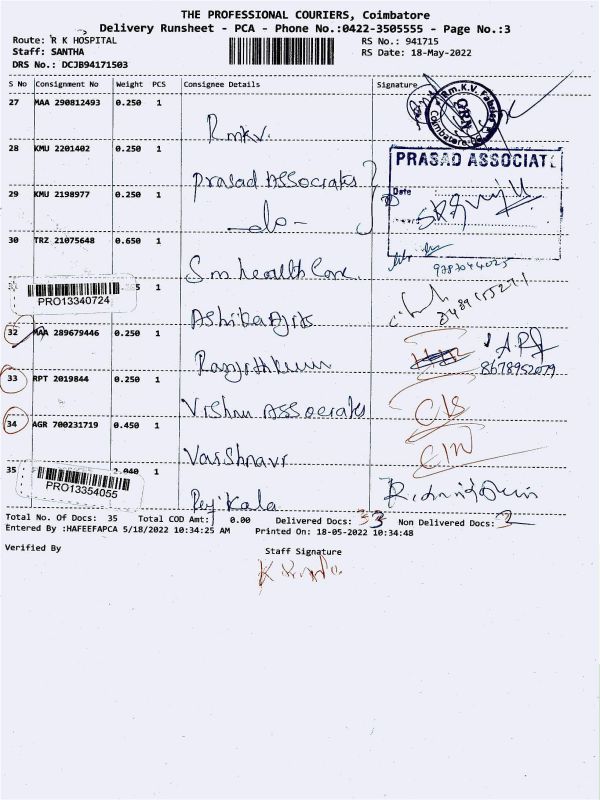 THE PROFESSIONAL COURIERS, Coimbatore
Delivery Runsheet - PCA - Phone No.:0422-3505555 - Page No.:3
Route: R K HOSPITAL
RS No.: 941715
Staff: SANTHA
RS Date: 18-May-2022
DRS No.: DCJB94171503
S No Consignment No Weight PCS Consignee Details Signature
27 MAA 290812493 0.250 1
Rmkv.
Rm.K.V. Fabrics
Coimbatore
28 KMU 2201402 0.250 1
Prasad Associates
PRASAD ASSOCIATE
Date
29 KMU 2198977 0.250 1
-do-
30 TRZ 21075648 0.650 1
Sm health Care
9787044025
1
PRO13340724
32 MAA 289679446 0.250 1
Ranjithkumar
8678952079
33 RPT 2019844 0.250 1
Vishnu Associates
34 AGR 700231719 0.450 1
Vaishnavi
35 2.040 1
PRO13354055
Total No. Of Docs: 35 Total COD Amt: 0.00 Delivered Docs: 33 Non Delivered Docs: 2
Entered By :HAFEEFAPCA 5/18/2022 10:34:25 AM Printed On: 18-05-2022 10:34:48
Verified By
Staff Signature